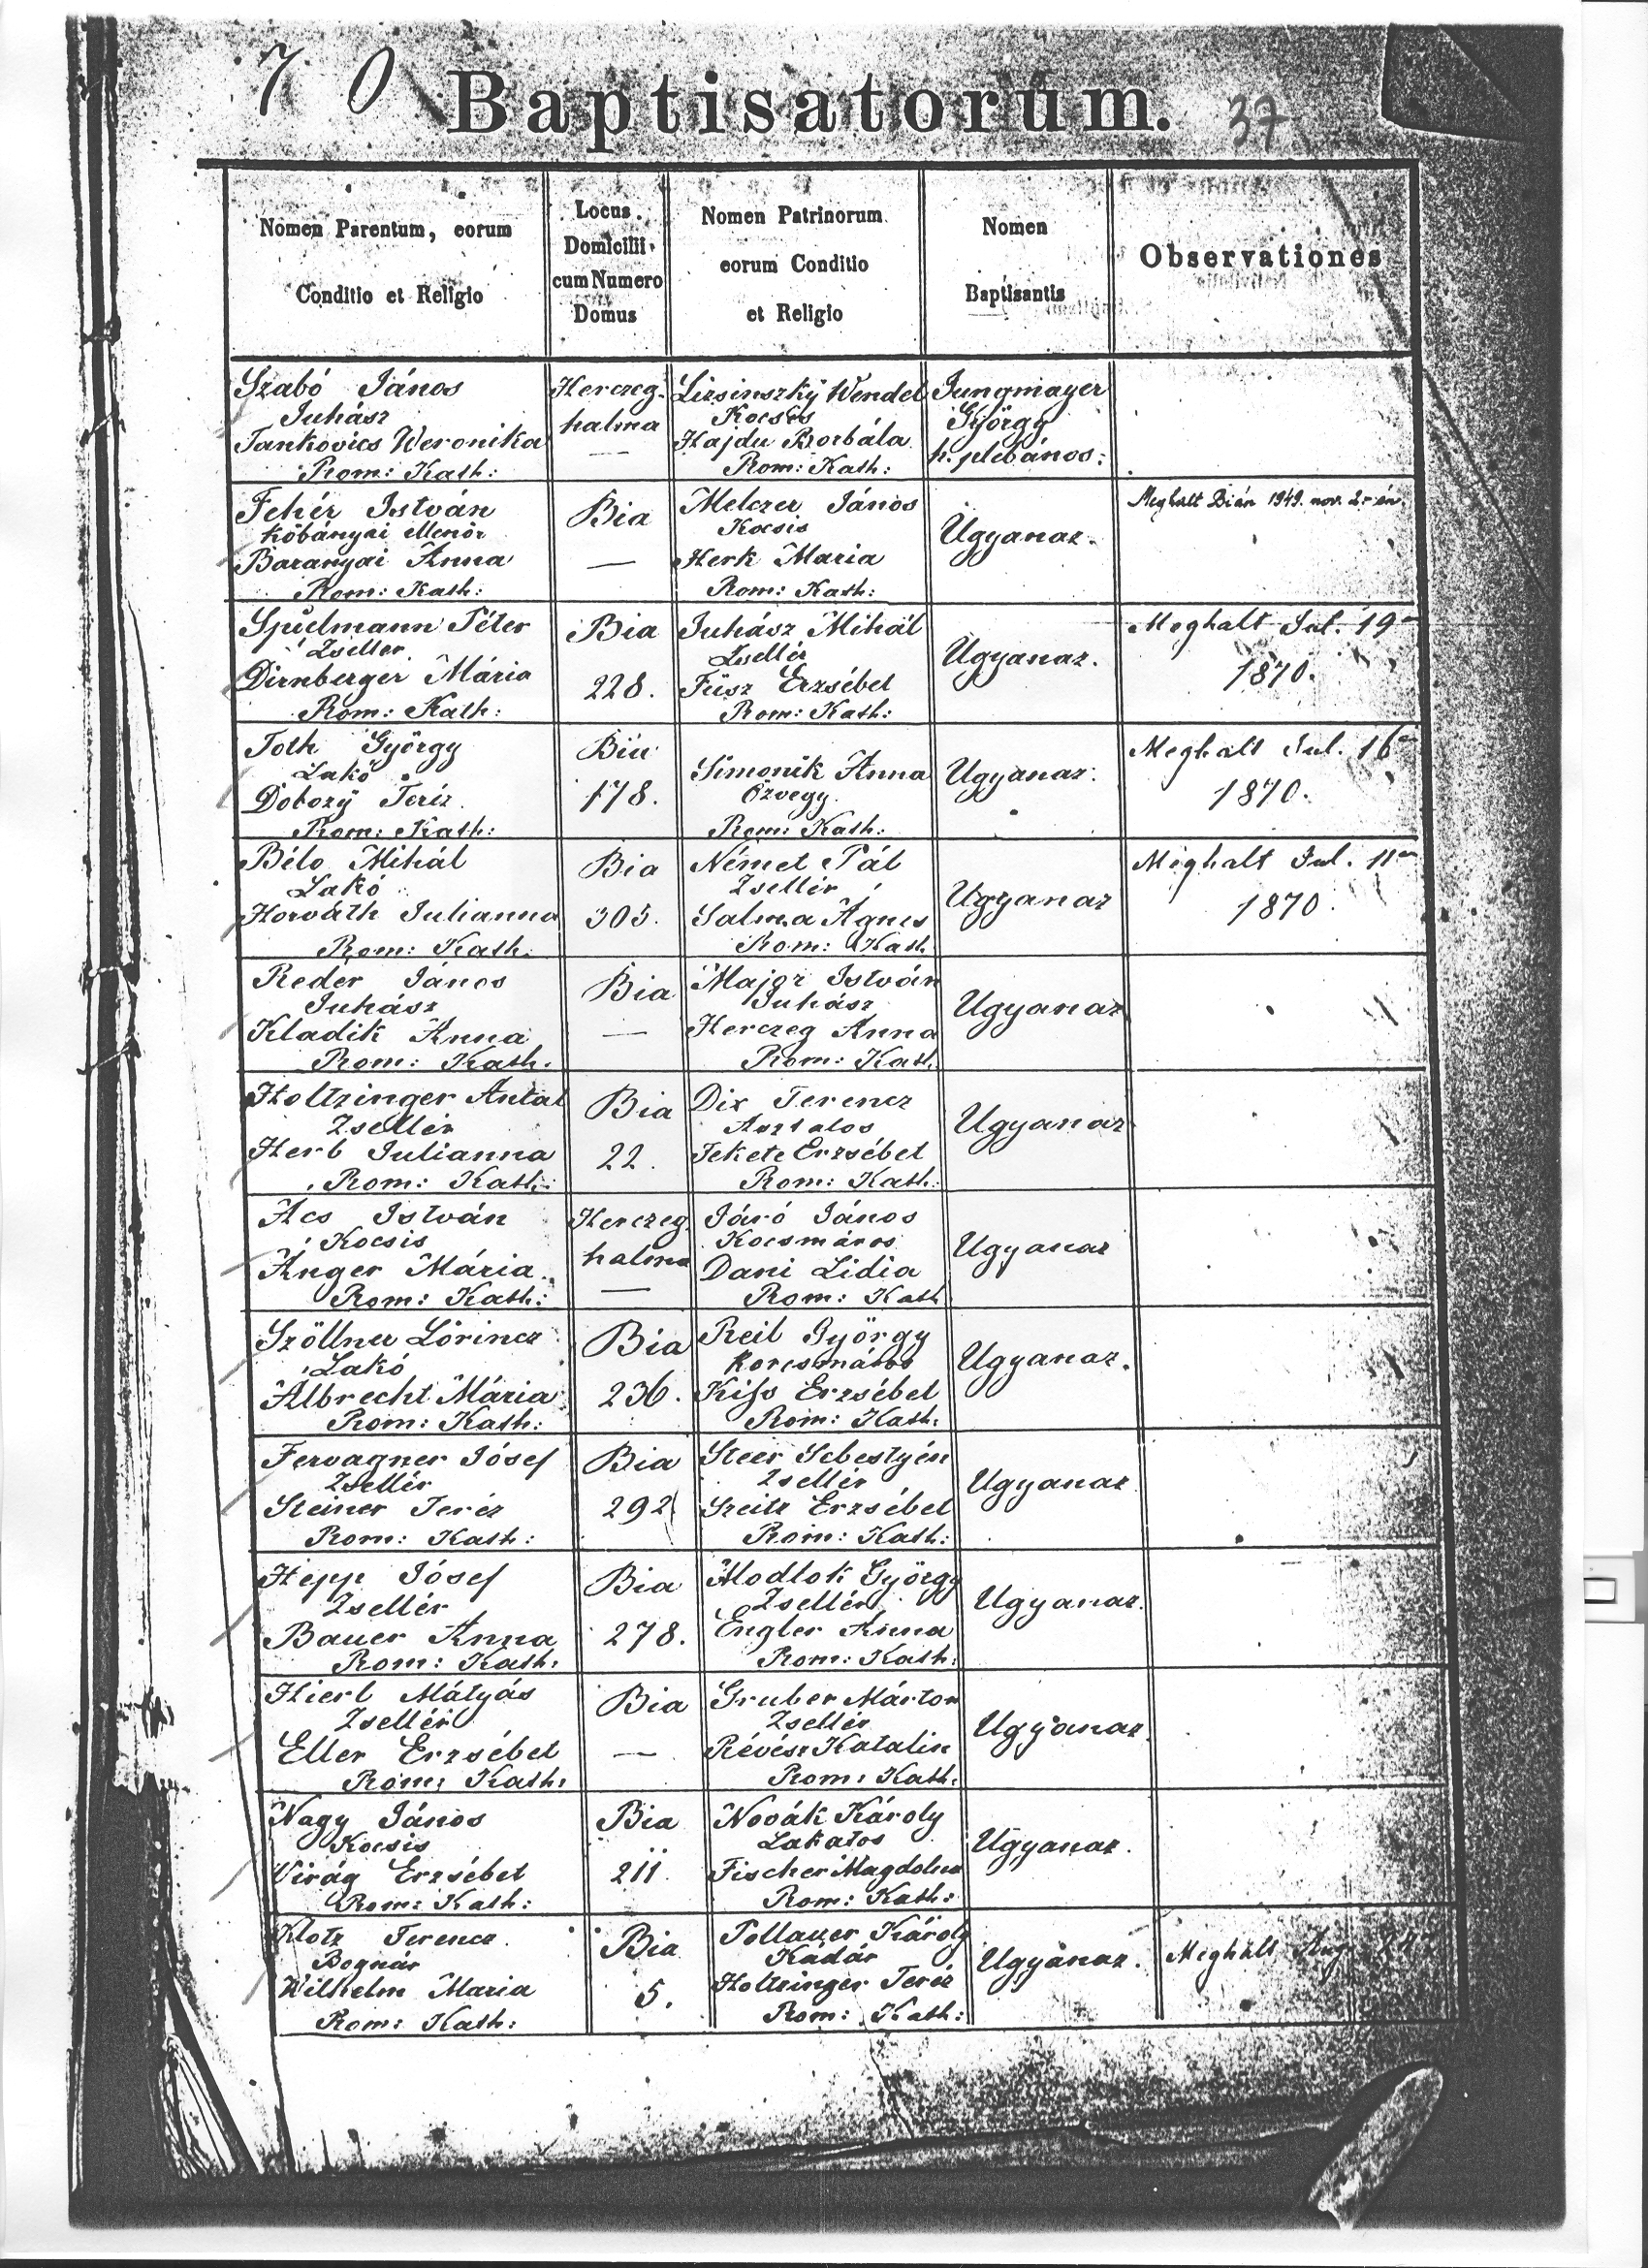 7 0 Baptisatorum. 37
Nomen Parentum, eorum
Conditio et Religio
Locus
Domicilii
cum Numero
Domus
Nomen Patrinorum
eorum Conditio
et Religio
Nomen
Baptisantis
Observationes
Szabó János
Juhász
Jankovics Weronika
Rom: Kath:
Herczeg-
halma
—
Lizsinszky Wendel
Kocsis
Hajdu Borbála
Rom: Kath:
Jungmayer
György
h. plébános:
Fehér István
kőbányai ellenőr
Baranyai Anna
Rom: Kath:
Bia
—
Melczer János
Kocsis
Herk Maria
Rom: Kath:
Ugyanaz.
Meghalt Bián 1949. nov. 2-án.
Spielmann Péter
Zseller
Dirnberger Mária
Rom: Kath:
Bia
228.
Juhász Mihál
Zsellér
Füsz Erzsébet
Rom: Kath:
Ugyanaz.
Meghalt Jul. 19
1870.
Toth György
Lakó
Dobozy Teréz
Rom: Kath:
Bia
178.
Simonik Anna
özvegy
Rom: Kath:
Ugyanaz.
Meghalt Jul. 16
1870.
Bélo Mihál
Lakó
Horváth Julianna
Rom: Kath.
Bia
305.
Német Pál
Zsellér
Salma Ágnes
Rom: Kath
Ugyanaz
Meghalt Jul. 11
1870.
Reder János
Juhász
Kladik Anna
Rom: Kath.
Bia
—
Major István
Juhász
Herczeg Anna
Rom: Kath.
Ugyanaz
Holtzinger Antal
Zsellér
Herb Julianna
Rom: Kath:
Bia
22.
Dix Ferencz
Asztalos
Fekete Erzsébet
Rom: Kath:
Ugyanaz
Ács István
Kocsis
Anger Mária
Rom: Kath:
Herczeg
halma
—
Járó János
Kocsmáros
Dani Lidia
Rom: Kath
Ugyanaz
Szöllner Lőrincz
Lakó
Albrecht Mária
Rom: Kath:
Bia
236.
Reil György
korcsmáros
Kiss Erzsébet
Rom: Kath:
Ugyanaz.
Fervagner Jósef
Zsellér
Steiner Teréz
Rom: Kath:
Bia
292
Steer Sebestyén
Zsellér
Szeitz Erzsébet
Rom: Kath:
Ugyanaz
Hepp Jósef
Zsellér
Bauer Anna
Rom: Kath:
Bia
278.
Modlok György
Zsellér
Engler Anna
Rom: Kath:
Ugyanaz.
Hierl Mátyás
Zsellér
Eller Erzsébet
Rom: Kath:
Bia
—
Gruber Márton
Zsellér
Révész Katalin
Rom: Kath:
Ugyanaz
Nagy János
Kocsis
Virág Erzsébet
Rom: Kath:
Bia
211.
Novák Károly
Lakatos
Fischer Magdolna
Rom: Kath:
Ugyanaz.
Klotz Ferencz
Bognár
Wilhelm Maria
Rom: Kath:
Bia
5.
Pollauer Károly
Kádár
Holtzinger Teréz
Rom: Kath:
Ugyanaz.
Meghalt Aug.